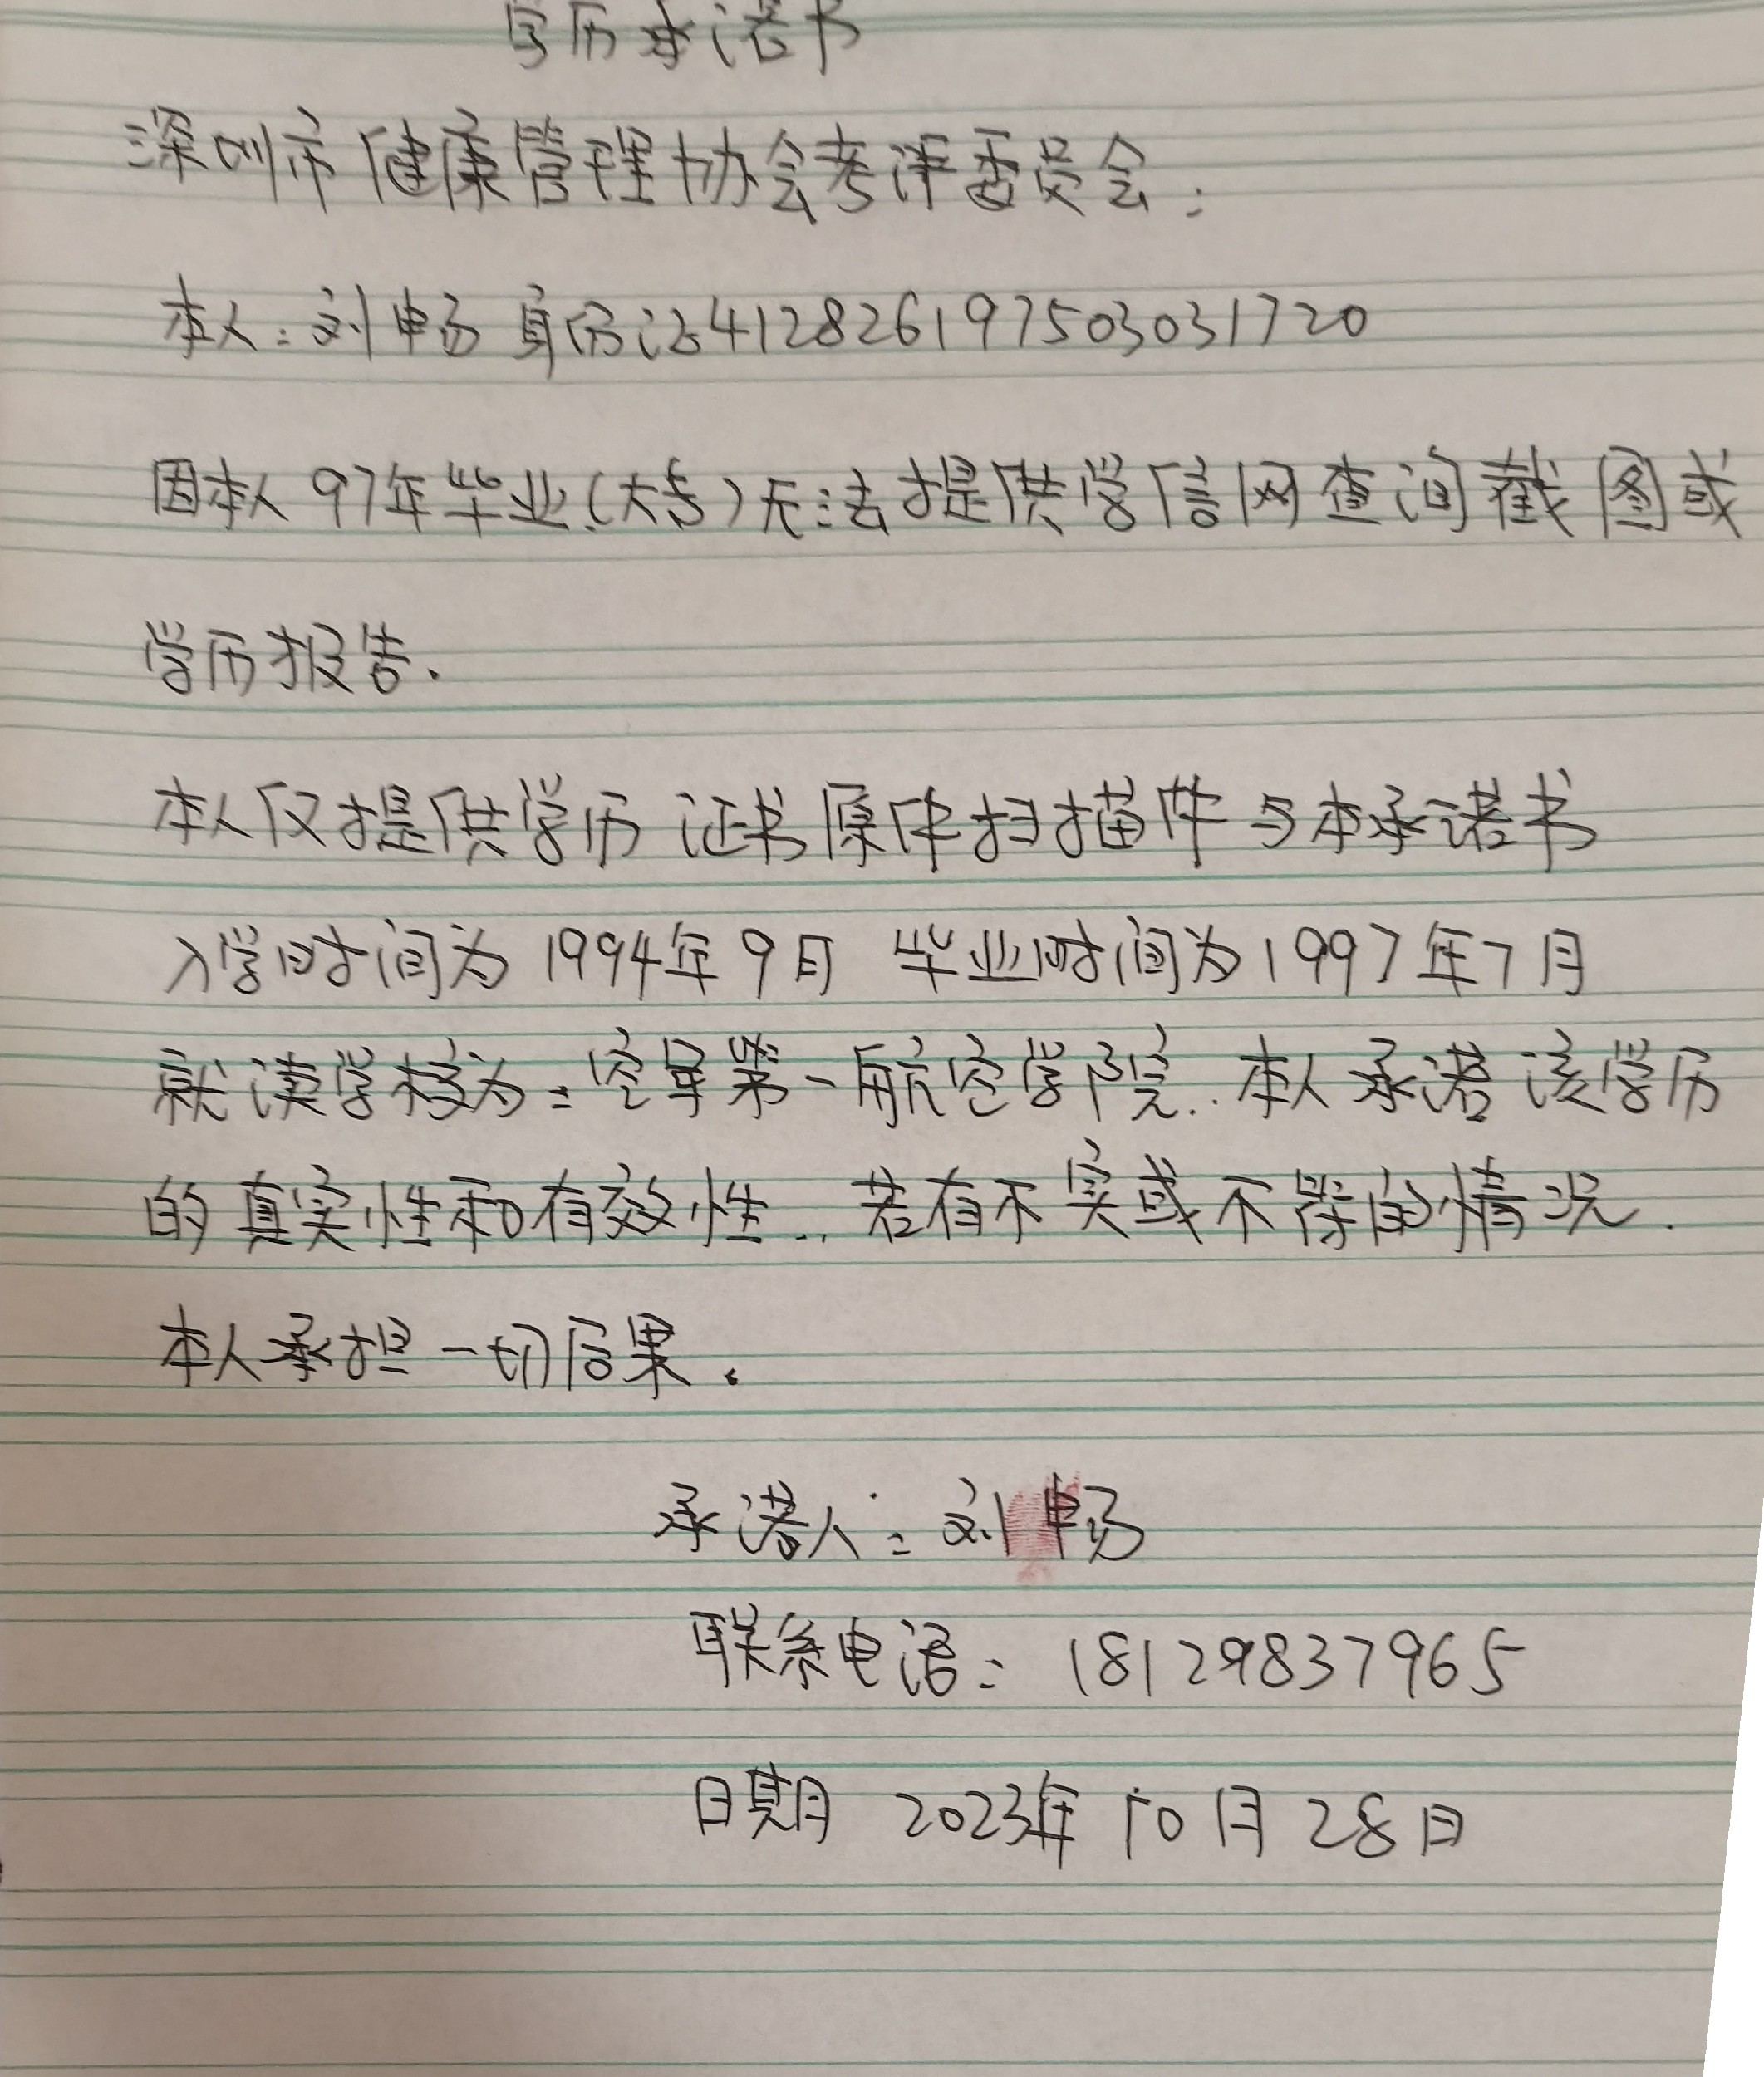 学历承诺书
深圳市健康管理协会考评委员会：
本人：刘畅 身份证412826197503031720
因本人97年毕业(大专)无法提供学信网查询截图或
学历报告.
本人仅提供学历证书原件扫描件与本承诺书
入学时间为1994年9月 毕业时间为1997年7月
就读学校为：空军第一航空学院.. 本人承诺该学历
的真实性和有效性.. 若有不实或不符的情况.
本人承担一切后果.
承诺人：刘畅
联系电话：18129837965
日期 2023年10月28日